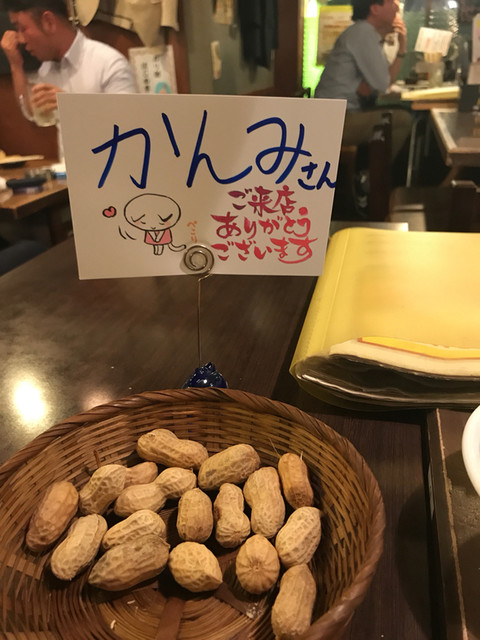 かんみさん
ご来店
ありがとう
ございます
ペコリ